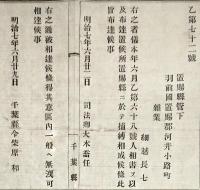 乙第七十二號
置賜縣管下
羽前國置賜郡河井小路町
雜業
細越長七
右之者儀本年六月第六十八號人相書ヲ以
及布達置候所置賜縣ニ於テ捕縛相成候條此
旨布達候事
明治七年六月廿二日 司法卿大木喬任
千葉縣
右之通被相達候條得其意區內一般ヘ無洩可
相達候事
明治七年六月廿九日 千葉縣令柴原 和